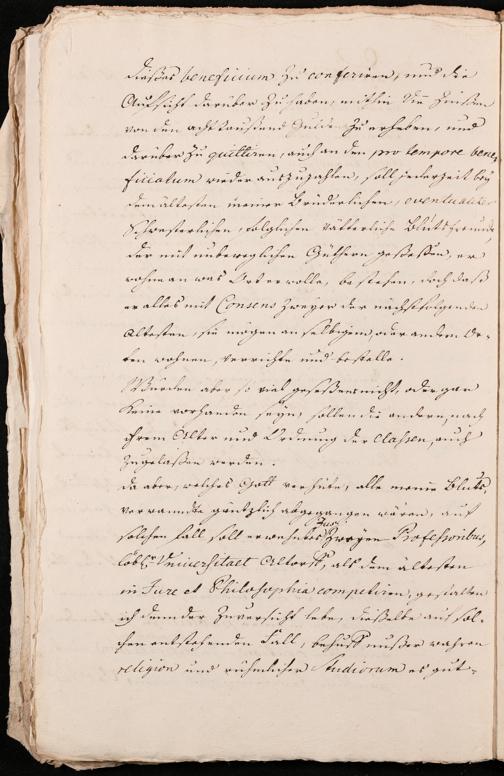 dieses beneficium zu conferiren, und die
Aufsicht darüber zu haben, mithin die Zinsen
von den achttausend Gulden zu erheben, und
darüber zu quittiren, auch an den pro tempore bene-
ficiatum wieder auszuzahlen, soll jederzeit bey
den ältesten meiner Brüderlichen, eventualiter
Schwesterlichen, folglichen vätterliche Blutsfreunde,
der mit unbeweglichen Güthern gesessen, er
wohne an was Ort er wolle, bestehen, doch daß
er alles mit Consens zweyer der nächstfolgenden
Ältesten, sie mögen an selbigem, oder andern Or-
ten wohnen, verrichte und bestelle.
Würden aber so viel gesessene nicht, oder gar
keine vorhanden seyn, sollen die andern, nach
ihrem Alter und Ordnung der Classen, auch
zugelassen werden.
Da aber, welches Gott verhüte, alle meine Bluts-
verwandte gäntzlich abgegangen wären, auf
solchen Fall soll erwehntes Jus zweyen Professoribus,
löbl. Universitaet Altorff, als dem ältesten
in Jure et Philosophia competiren, gestalten
ich denn der Zuversicht lebe, dieselbe auf sol-
chen entstehenden Fall, behuff unßer wahren
religion und rühmlicher Studiorum es gut-